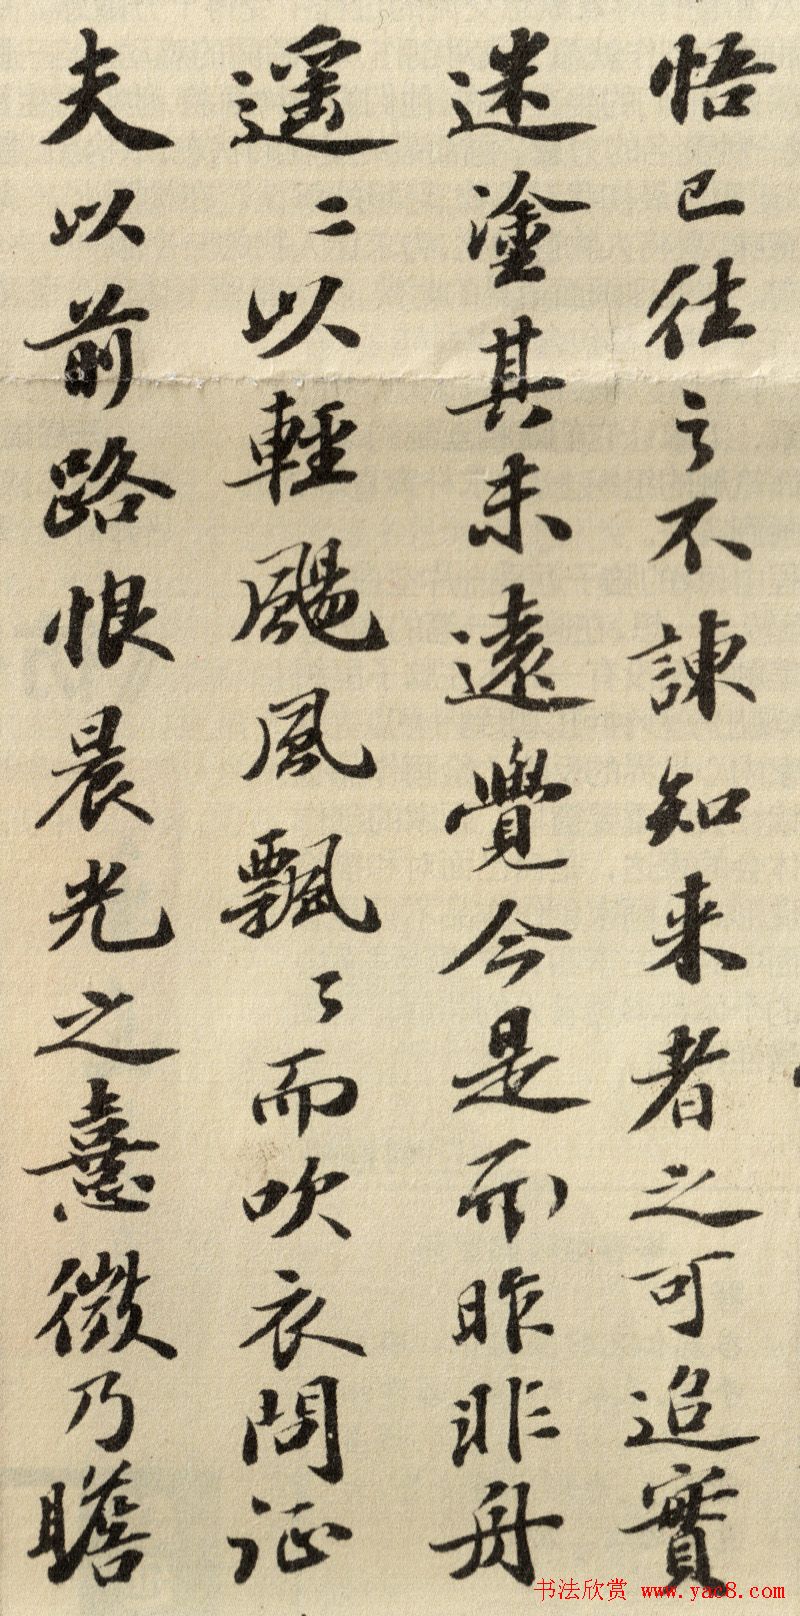 悟已往之不諫知来者之可追實
迷塗其未遠覺今是而昨非舟
遥〻以輕颺風飄〻而吹衣問征
夫以前路恨晨光之憙微乃瞻
书法欣赏 www.yac8.com